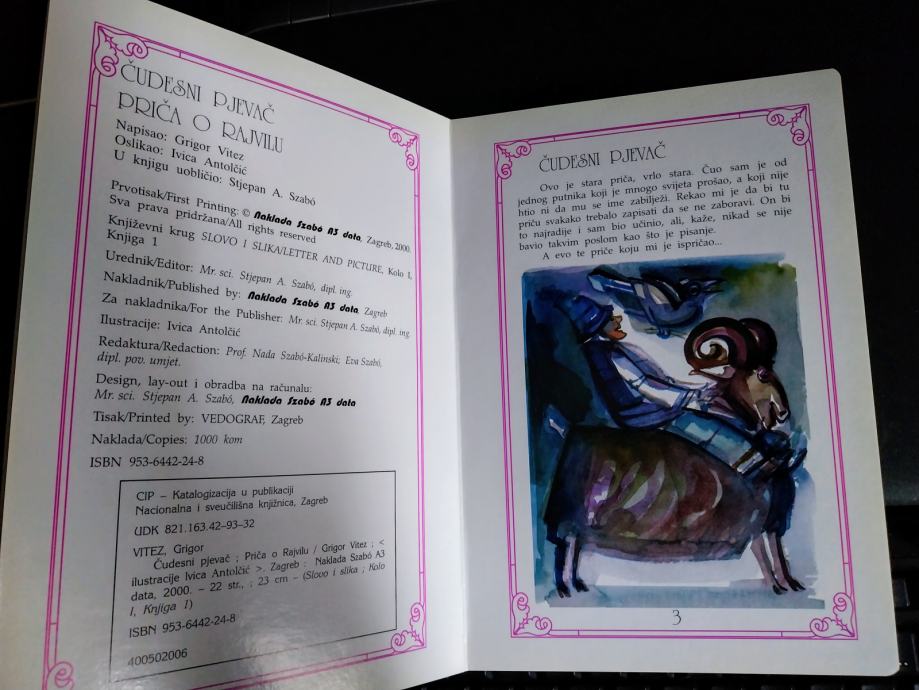 ČUDESNI PJEVAČ
PRIČA O RAJVILU
Napisao: Grigor Vitez
Oslikao: Ivica Antolčić
U knjigu uobličio: Stjepan A. Szabó
Prvotisak/First Printing: © Naklada Szabó A3 data, Zagreb, 2000.
Sva prava pridržana/All rights reserved
Književni krug SLOVO I SLIKA/LETTER AND PICTURE, Kolo I,
Knjiga 1
Urednik/Editor: Mr. sci. Stjepan A. Szabó, dipl. ing.
Nakladnik/Published by: Naklada Szabó A3 data, Zagreb
Za nakladnika/For the Publisher: Mr. sci. Stjepan A. Szabó, dipl. ing.
Ilustracije: Ivica Antolčić
Redaktura/Redaction: Prof. Nada Szabó-Kalinski; Eva Szabó,
dipl. pov. umjet.
Design, lay-out i obradba na računalu:
Mr. sci. Stjepan A. Szabó, Naklada Szabó A3 data
Tisak/Printed by: VEDOGRAF, Zagreb
Naklada/Copies: 1000 kom
ISBN 953-6442-24-8
CIP – Katalogizacija u publikaciji
Nacionalna i sveučilišna knjižnica, Zagreb
UDK 821.163.42–93–32
VITEZ, Grigor
Čudesni pjevač ; Priča o Rajvilu / Grigor Vitez ; <
ilustracije Ivica Antolčić >. Zagreb : Naklada Szabó A3
data, 2000. – 22 str., ; 23 cm – (Slovo i slika ; Kolo
I, Knjiga 1)
ISBN 953-6442-24-8
400502006
ČUDESNI PJEVAČ
Ovo je stara priča, vrlo stara. Čuo sam je od
jednog putnika koji je mnogo svijeta prošao, a koji nije
htio ni da mu se ime zabilježi. Rekao mi je da bi tu
priču svakako trebalo zapisati da se ne zaboravi. On bi
to najradije i sam bio učinio, ali, kaže, nikad se nije
bavio takvim poslom kao što je pisanje.
A evo te priče koju mi je ispričao...
3